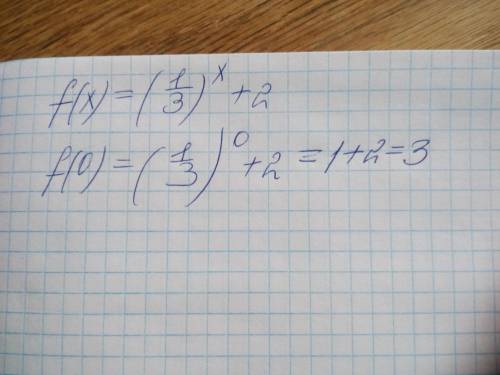 f(x) = (1/3)^x + 2
f(0) = (1/3)^0 + 2 = 1 + 2 = 3